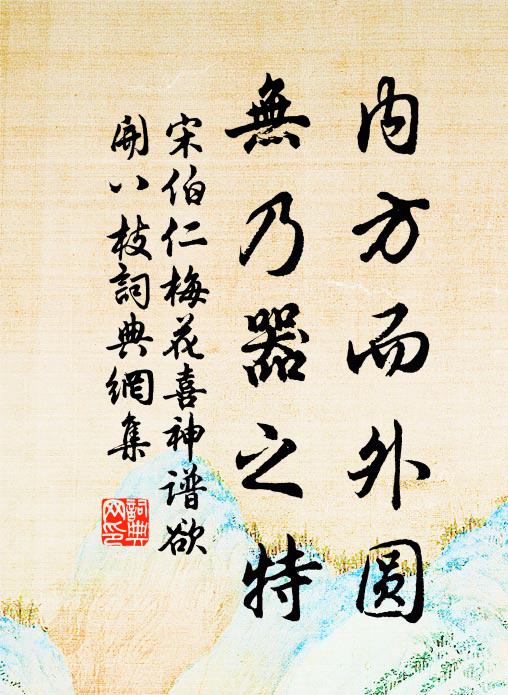 内方而外圆
無乃器之特
宋伯仁梅花喜神谱欲
開八枝詞典網集
詞典
网印